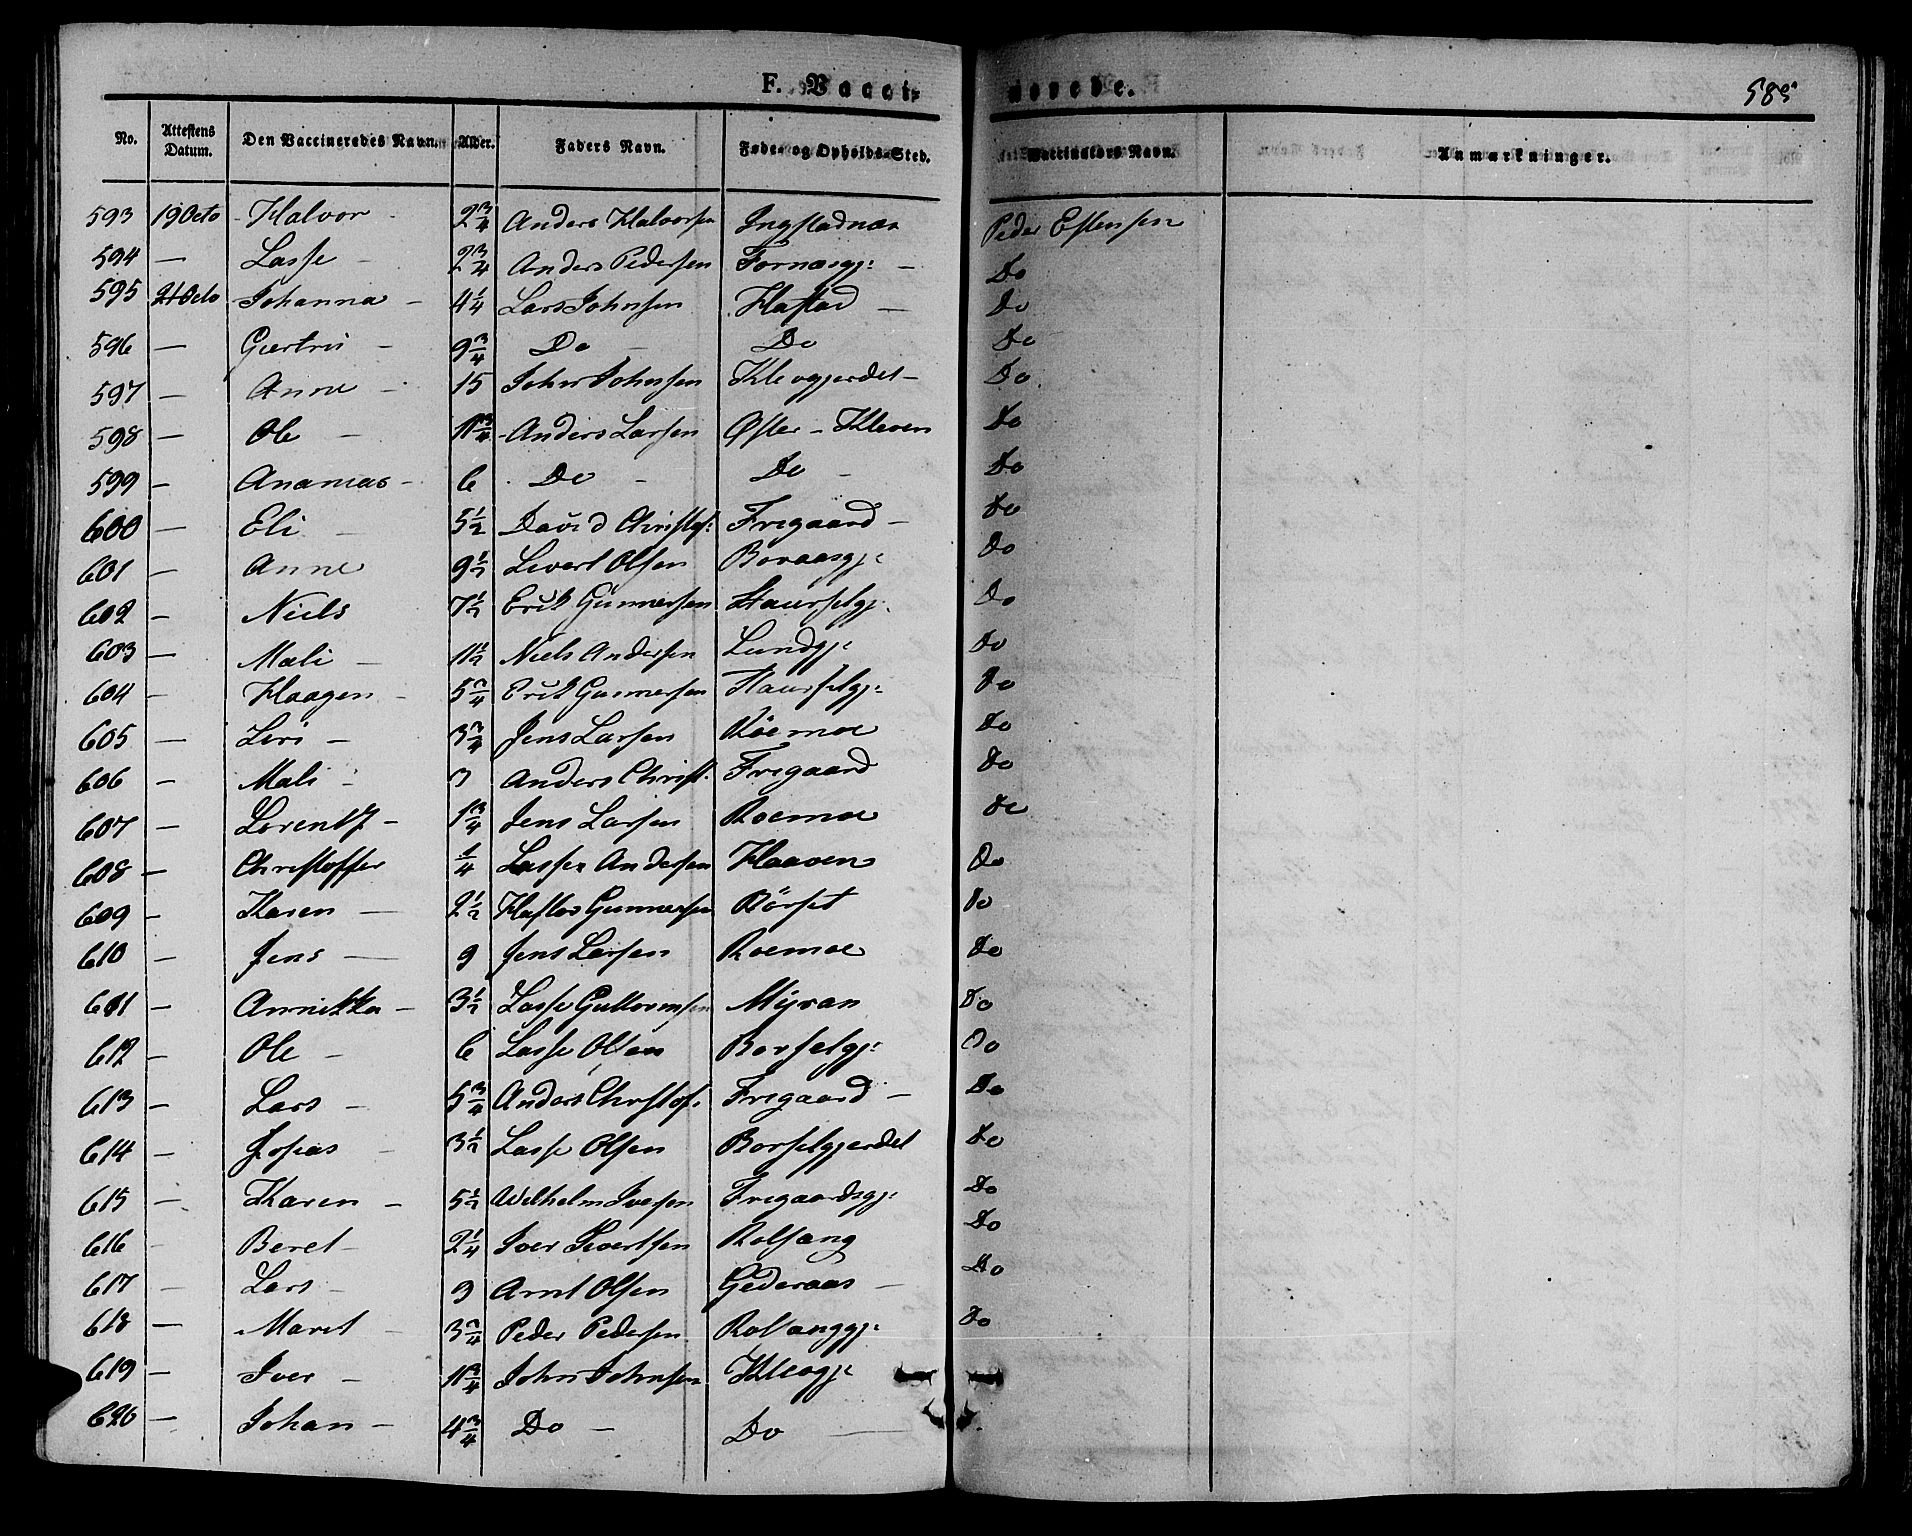 F. Vacci-
nerede.
585
No. Attestens Datum. Den Vaccineredes Navn. Alder. Faders Navn. Føde- og Opholds-Sted. Vaccinators Navn. Anmærkninger.
593 19 Octo - Halvor - 2 3/4 Anders Halvorsen Ingstadnæs Peder Estensen
594 — Lasse - 2 3/4 Anders Pedersen Fornæsgj: - Do
595 21 Octo Johanna - 4 1/4 Lars Johnsen Hastad — Do
596 — Giertru - 9 3/4 Do - Do Do
597 — Anne - 15 John Johnsen Klevgjerdet - Do
598 — Ole - 11 3/4 Anders Larsen Øster - Kleven Do
599 — Ananias - 6 Do - Do - Do
600 — Eli - 5 1/2 David Christof: Fregaard - Do
601 — Anne 9 1/2 Sivert Olsen Boraasgj: Do
602 — Niels 7 1/2 Erik Gunnersen Staurselgj: Do
603 — Mali - 11 1/2 Niels Andersen Lundgj: Do
604 — Haagen - 5 3/4 Erik Gunnersen Staurselgj: Do
605 — Siri - 3 3/4 Jens Larsen Röemoe Do
606 — Mali - 3 Anders Christ. Fregaard Do
607 — Lorentz - 1 3/4 Jens Larsen Roemoe Do
608 — Christoffer 1/4 Lasse Andersen Haaven Do
609 — Karen — 2 1/2 Haftor Gunnersen Börset Do
610 — Jens — 9 Jens Larsen Roemoe Do
611 — Annikka - 3 1/2 Lasse Guttormsen Myran Do
612 — Ole - 6 Lasse Olsen Borselgj: Do
613 — Lars - 5 3/4 Anders Christof. Fregaard - Do
614 — Josias - 3 1/2 Lasse Olsen Borselgjerdet Do
615 — Karen - 5 1/2 Wilhelm Iversen Fregaardsgj: Do
616 — Beret - 2 1/4 Iver Sivertsen Rolsang Do
617 — Lars - 9 Arnt Olsen Gederaas - Do
618 — Marit - 3 3/4 Peder Pedersen Rolsanggj: Do
619 — Iver - 11 3/4 John Johnsen Klevgj:
620 — Johan - 4 3/4 Do — Do —